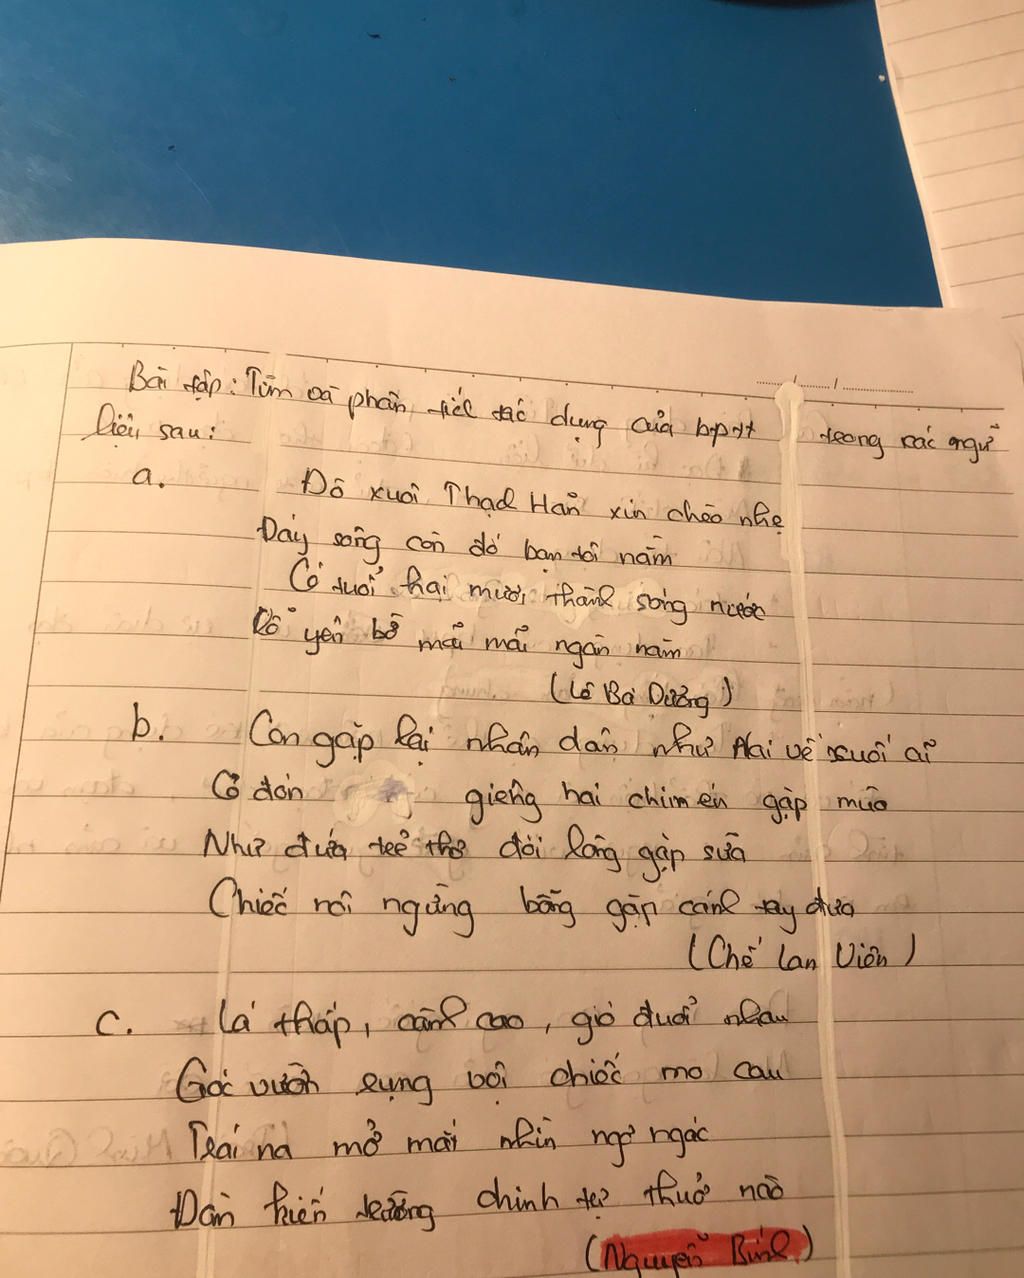 Bài tập: Tìm và phân tích tác dụng của bptt trong các ngữ
liệu sau:
a. Đò xuôi Thạch Hãn xin chèo nhẹ
Đáy sông còn đó bạn tôi nằm
Có tuổi hai mươi thành sóng nước
Vỗ yên bờ mãi mãi ngàn năm
(Lê Bá Dương)
b. Con gặp lại nhân dân như nai về suối cũ
Cỏ đón giêng hai chim én gặp mùa
Như đứa trẻ thơ đói lòng gặp sữa
Chiếc nôi ngừng bỗng gặp cánh tay đưa
(Chế Lan Viên)
c. Lá thấp, cành cao, gió đuổi nhau
Góc vườn rụng vội chiếc mo cau
Trái na mở mắt nhìn ngơ ngác
Đàn kiến trường chinh tự thuở nào
(Nguyễn Bính)